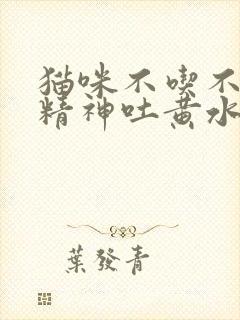 猫咪不喫不
精神吐黄水
葉發青